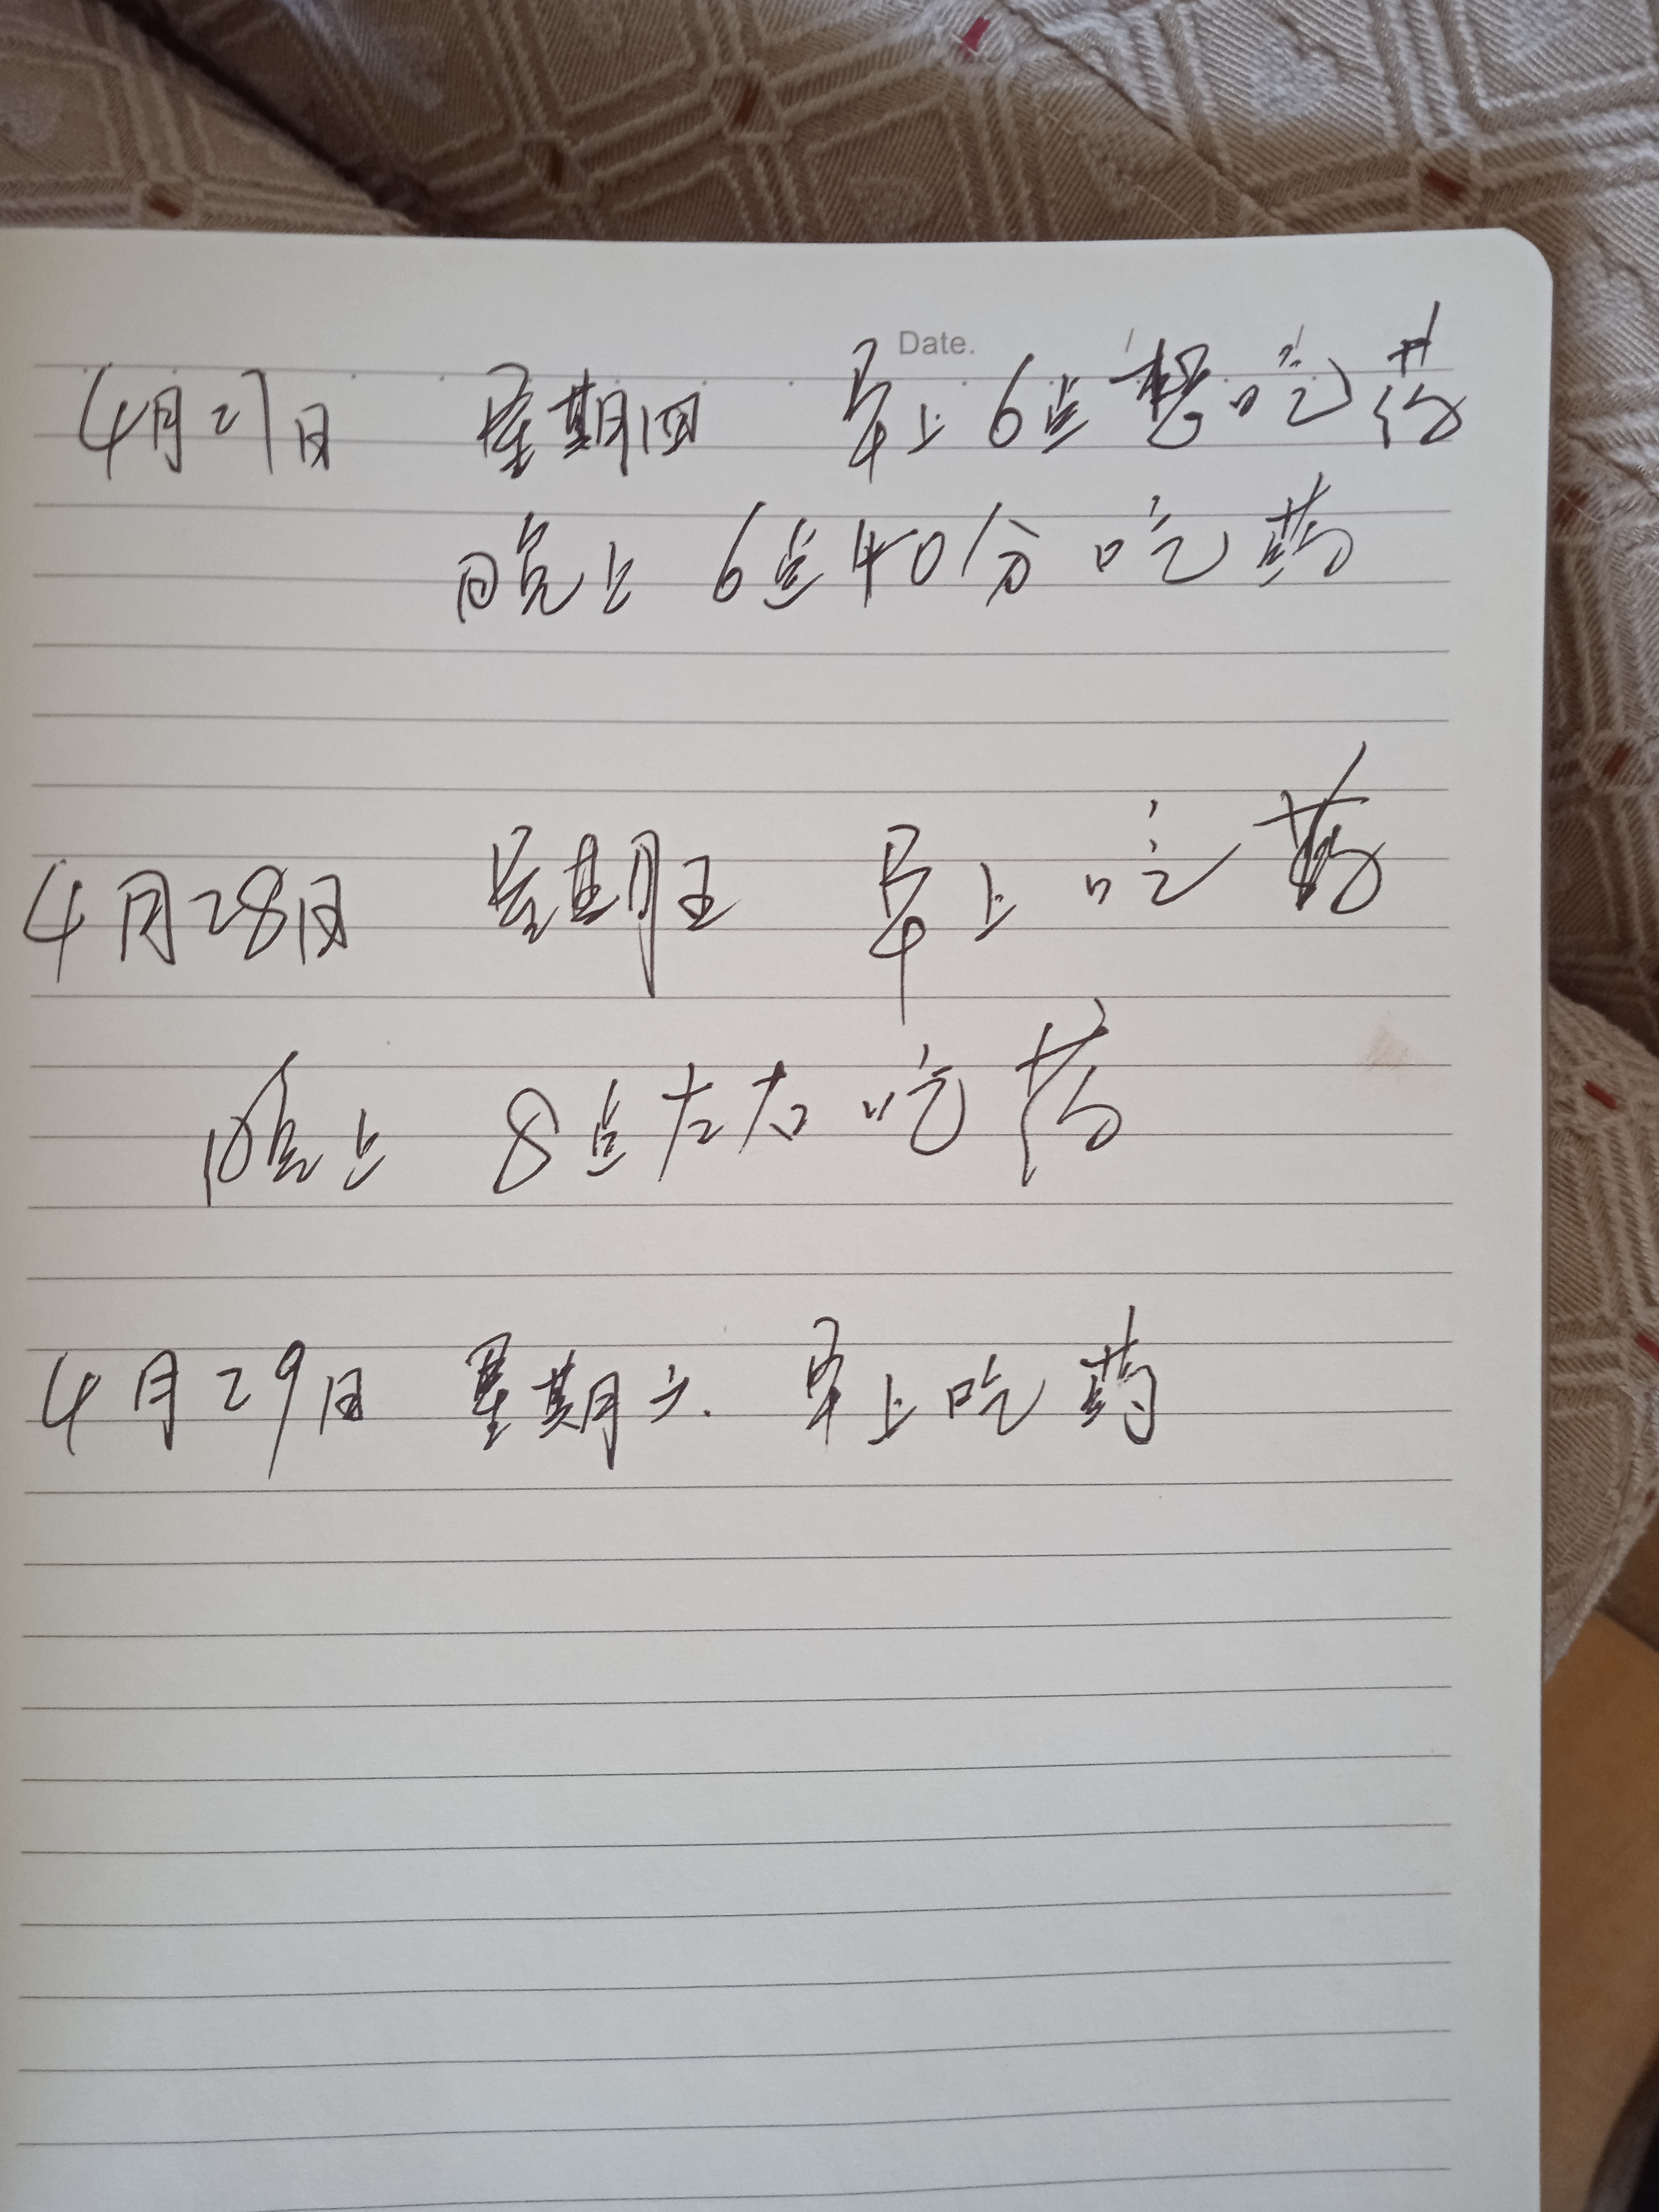 Date.
4月27日 星期四 早上6点整吃药
晚上 6点40分 吃药
4月28日 星期五 早上吃药
晚上 8点左右吃药
4月29日 星期六. 早上吃药